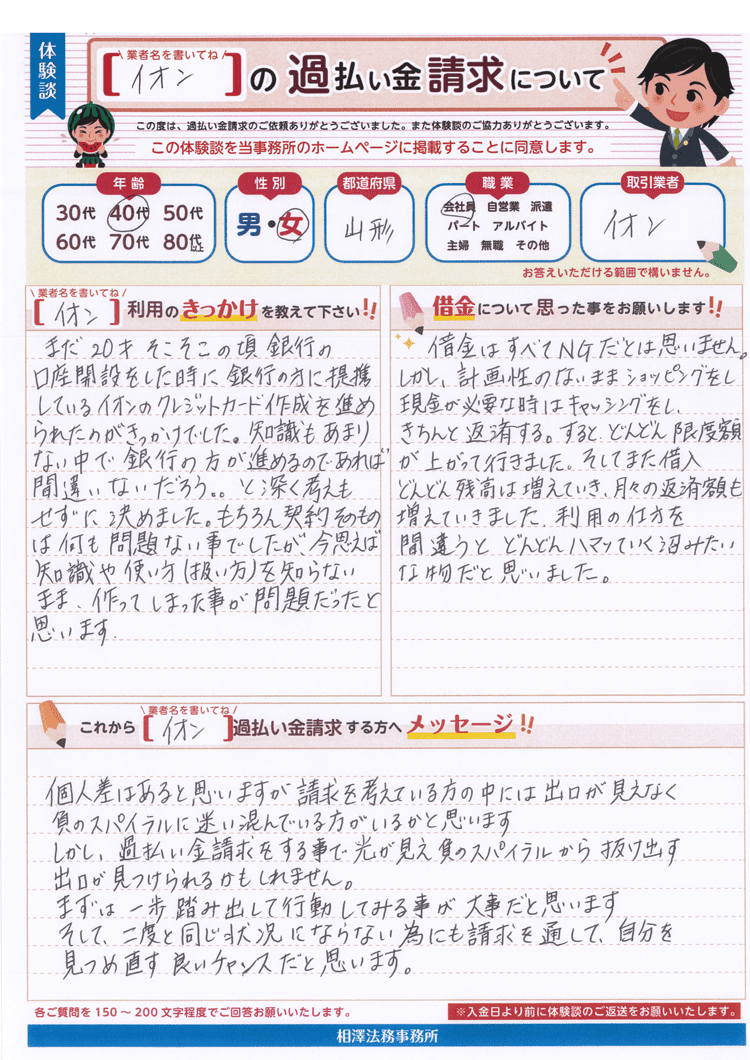 体験談
業者名を書いてね
[イオン]の過払い金請求について
この度は、過払い金請求のご依頼ありがとうございました。また体験談のご協力ありがとうございます。
この体験談を当事務所のホームページに掲載することに同意します。
年齢
30代 40代 50代
60代 70代 80代以上
性別
男・女
都道府県
山形
職業
会社員 自営業 派遣
パート アルバイト
主婦 無職 その他
取引業者
イオン
お答えいただける範囲で構いません。
業者名を書いてね
[イオン]利用のきっかけを教えて下さい!!
まだ20才そこそこの頃銀行の
口座開設をした時に銀行の方に提携
しているイオンのクレジットカード作成を進め
られたのがきっかけでした。知識もあまり
ない中で銀行の方が進めるのであれば
間違いないだろう。。と深く考えも
せずに決めました。もちろん契約そのもの
は何も問題ない事でしたが、今思えば
知識や使い方(扱い方)を知らない
まま、作ってしまった事が問題だったと
思います.
借金について思った事をお願いします!!
借金はすべてNGだとは思いません。
しかし、計画性のないままショッピングをし
現金が必要な時はキャッシングをし、
きちんと返済する。すると、どんどん限度額
が上がって行きました。そしてまた借入
どんどん残高は増えていき、月々の返済額も
増えていきました.利用の仕方を
間違うとどんどんハマッていく沼みたい
な物だと思いました。
業者名を書いてね
これから[イオン]過払い金請求する方へメッセージ!!
個人差はあると思いますが請求を考えている方の中には出口が見えなく
負のスパイラルに迷い混んでいる方がいるかと思います
しかし、過払い金請求をする事で光が見え負のスパイラルから抜け出す
出口が見つけられるかもしれません。
まずは一歩踏み出して行動してみる事が大事だと思います
そして、二度と同じ状況にならない為にも請求を通して、自分を
見つめ直す良いチャンスだと思います。
各ご質問を150〜200文字程度でご回答お願いいたします。
※入金日より前に体験談のご返送をお願いいたします。
相澤法務事務所